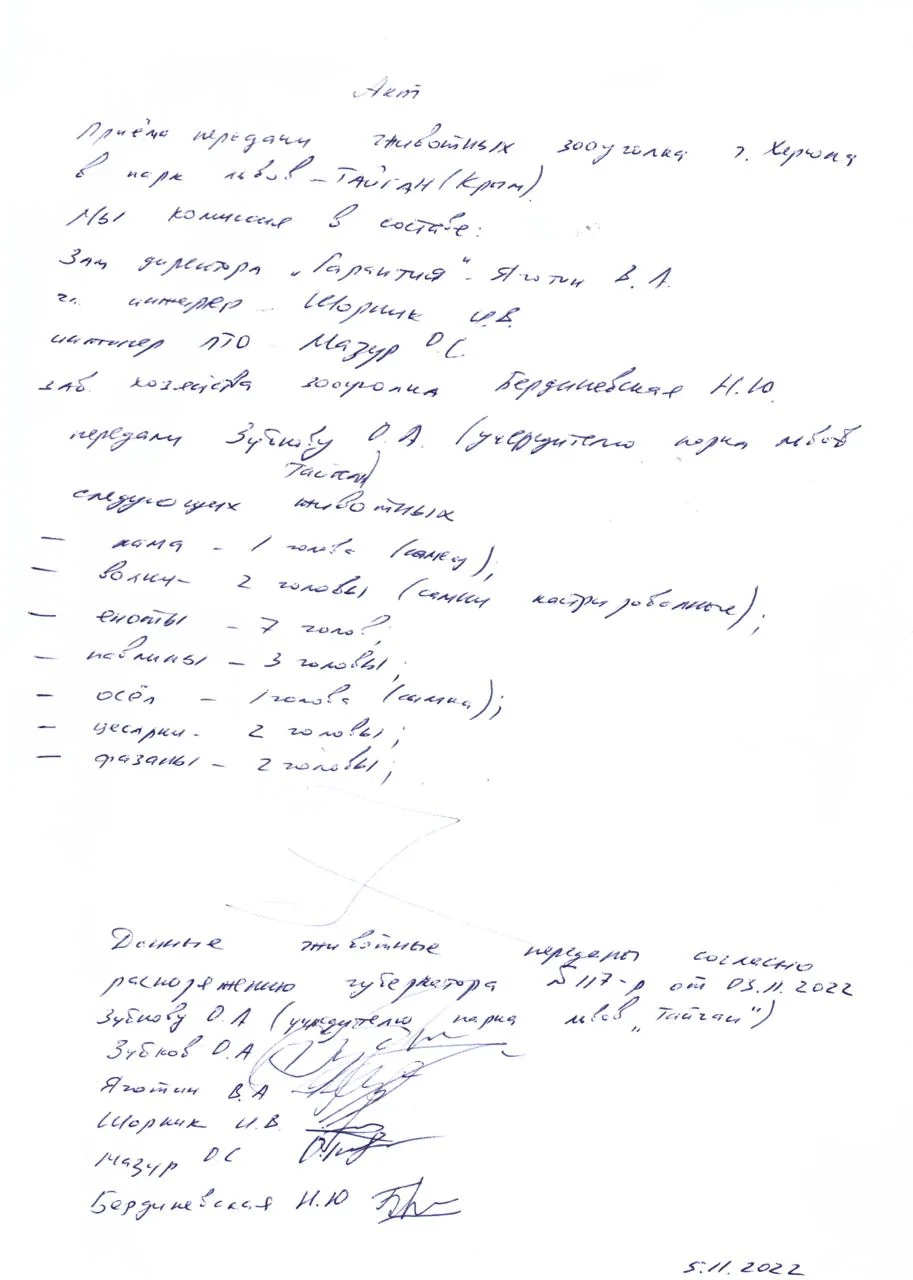 Акт
Приёма передачи животных зооуголка г. Херсона
в парк львов – ТАЙГАН (Крым)
Мы комиссия в составе:
Зам директора „Гарантия" – Яготин В. А.
гл. инженер – Шорник И.В.
инженер ПТО – Мазур О.С.
зав. хозяйства зооуголка Бердиневская Н.Ю.
передали Зубкову О.А. (учредителю парка львов
Тайган)
следующих животных
– лама – 1 голова (самец);
– волки – 2 головы (самки кастрированные);
– еноты – 7 голов;
– павлины – 3 головы;
– осёл – 1 голова (самка);
– цесарки – 2 головы;
– фазаны – 2 головы;
Данные животные переданы согласно
распоряжению губернатора №117-р от 03.11.2022
Зубкову О.А (учредителю парка львов „Тайган")
Зубков О.А
Яготин В.А
Шорник И.В.
Мазур ОС
Бердиневская Н.Ю
5.11.2022